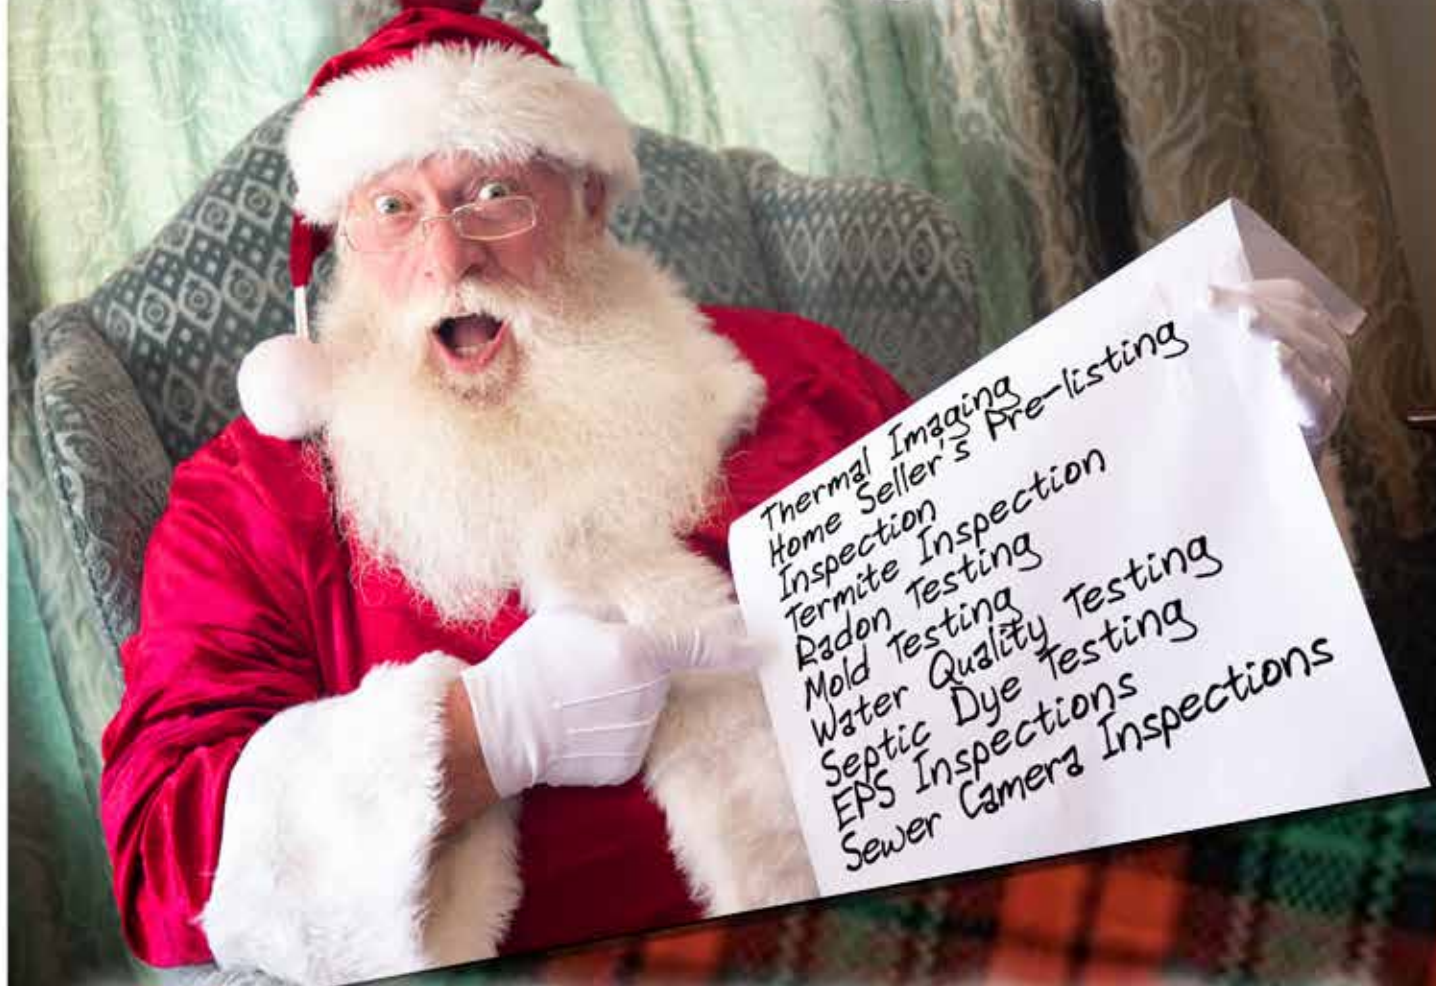 Thermal Imaging
Home Seller's Pre-listing
Inspection
Termite Inspection
Radon Testing
Mold Testing
Water Quality Testing
Septic Dye Testing
EPS Inspections
Sewer Camera Inspections